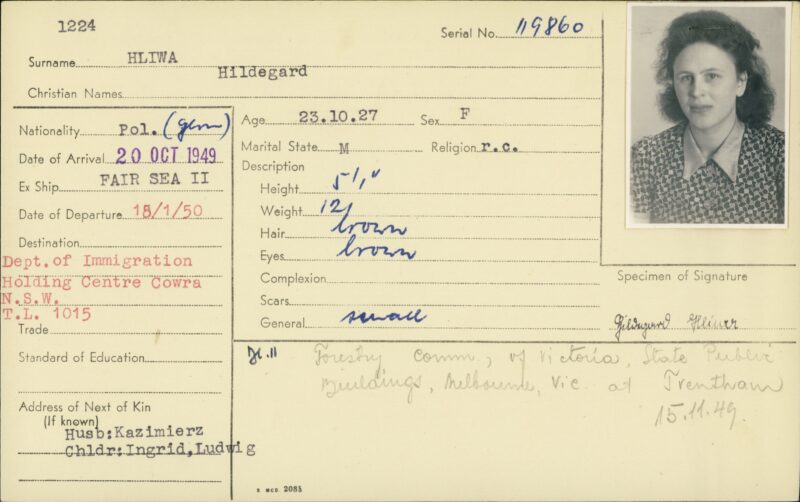 1224
Serial No. 119860
Surname HLIWA
Hildegard
Christian Names
Nationality Pol. (germ)
Date of Arrival 20 OCT 1949
Ex Ship FAIR SEA II
Date of Departure 18/1/50
Destination
Dept. of Immigration
Holding Centre Cowra
N.S.W.
T.L. 1015
Trade
Standard of Education
Address of Next of Kin
(If known)
Husb:Kazimierz
Chldr:Ingrid,Ludwig
Age 23.10.27 Sex F
Marital State M Religion r.c.
Description
Height 5'1"
Weight 121
Hair brown
Eyes brown
Complexion
Scars
General small
Specimen of Signature
Hildegard
Bl.11 Forestry Comm., of Victoria, State Public
Buildings, Melbourne, Vic. at Trentham
15.11.49.
2085